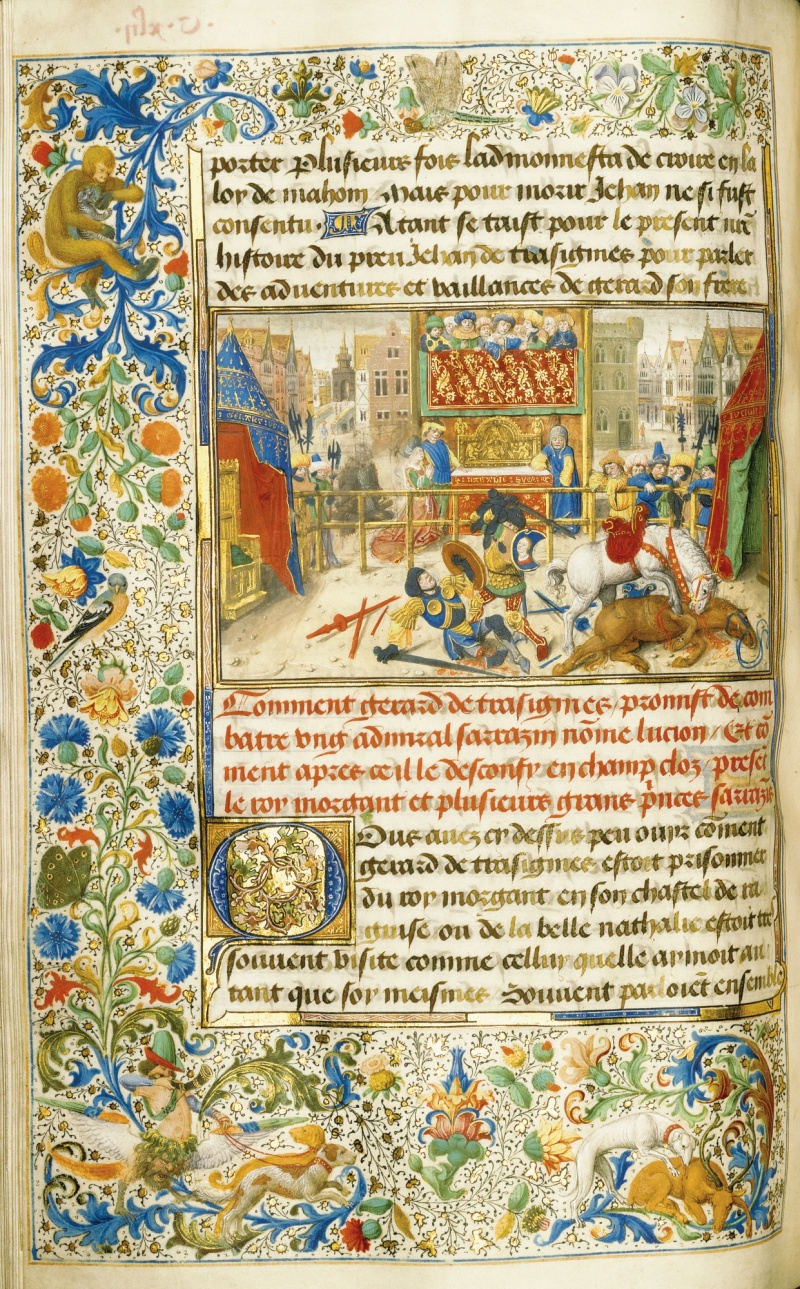 porter Plusieurs fois ladmonnesta de croire en la
loy de mahom Mais pour morir Jehan ne si fust
consentu. Atant se taist pour le present nr̄e
histoire du preu Jehan de trasignies pour parler
des aduentures et vaillances de gerard son frere
Comment gerard de trasignies / promist de com
batre vng admiral sarrazin nōme lucion / Et cō
ment apres ce il le desconfy en champ cloz / presēt
le roy morgant et plusieurs grans p̄nces sarrazīs
Ous auez cy dessus peu ouyr cōment
gerard de trasignies estoit prisonnier
du roy morgant en son chastel de ra
guise ou de la belle nathalie estoit tres
souuent visite comme celluy quelle aymoit au
tant que soy meismes Souuent parloiēt ensemble